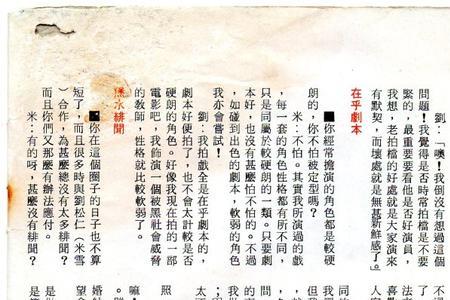 劉：「噢！我倒沒有想過這個
問題！我覺得是否時常拍檔是不要
緊的，最重要要看他是否好演員，
我想，老拍檔的好處就是大家演來
有默契，而壞處就是無甚新鮮感了。」
在乎劇本
■你經常擔演的角色都是較硬
朗的，你不怕被定型嗎？
米：不怕。其實我所演過的戲
，每一套的角色性格都有所不同，
只是同屬於較硬朗的一類。只要劇
本好，也沒有甚麼怕不怕的。不過
，如碰到出色的劇本，軟弱的角色
我亦會嘗試！
劉：我拍戲全是在乎劇本的，
劇本好便拍了，也不會太計較是否
硬朗的角色。好像我現在拍的一部
電影吧，我飾演一個被黑社會威脅
的教師，性格就比較軟弱了。
緋聞
■你在這個圈子的日子也不算
短了，而且很多時與劉松仁（米雪
）合作，為甚麼總沒有太多緋聞？
而且你們又那麼有辦法應付。
米：有的呀，甚麼沒有緋聞？